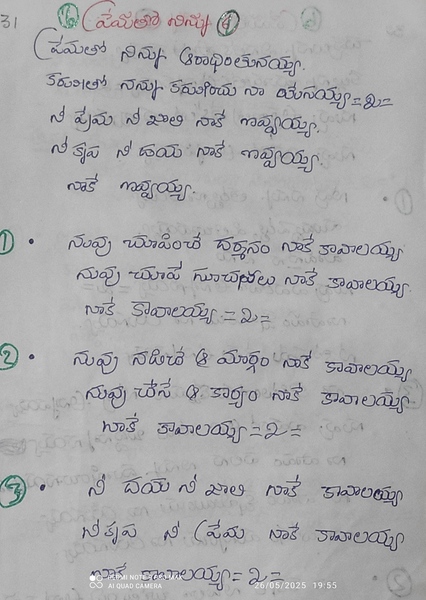 31
6 ప్రేమతో నిన్ను 4
ప్రేమతో నిన్ను ఆరాధింతునయ్య.
కరుణతో నన్ను కరుణించు నా యేసయ్య =2=
నీ ప్రేమ నీ జాలి నాకే ఇవ్వయ్య.
నీ కృప నీ దయ నాకే ఇవ్వయ్య.
నాకే ఇవ్వయ్య.
1 • నువు చూపించే దర్శనం నాకే కావాలయ్య
నువు చూపే సూచనలు నాకే కావాలయ్య.
నాకే కావాలయ్య =2=
2 • నువు నడిచే ఆ మార్గం నాకే కావాలయ్య
నువు చేసే ఆ కార్యం నాకే కావాలయ్య.
నాకే కావాలయ్య =2=
3 • నీ దయ నీ జాలి నాకే కావాలయ్య
నీ కృప నీ ప్రేమ నాకే కావాలయ్య
నాకే కావాలయ్య =2=
REDMI NOTE
AI QUAD CAMERA
26/05/2025 19:55